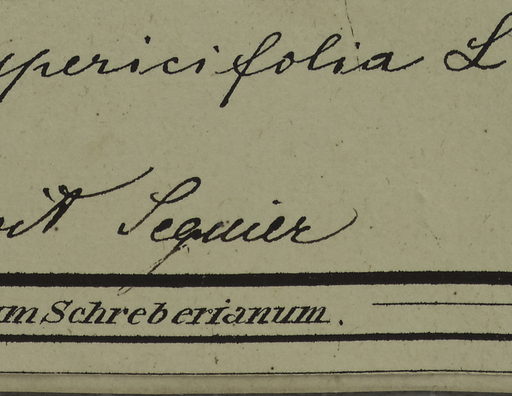 ypericifolia L
it Seguier
um Schreberianum.